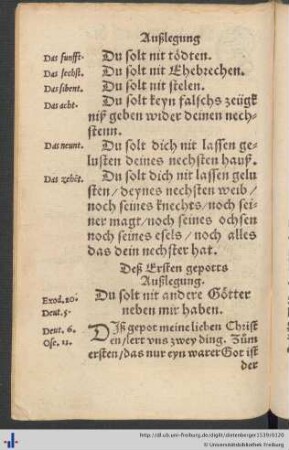 Außlegung
Das funfft. Du solt nit tödten.
Das sechst. Du solt nit Ehebrechen.
Das sibent. Du solt nit stelen.
Das acht. Du solt keyn falschs zeügk
niß geben wider deinen nech-
stenn.
Das neunt. Du solt dich nit lassen ge-
lusten deines nechsten hauß.
Das zehẽt. Du solt dich nit lassen gelu
sten/deynes nechsten weib/
noch seines knechts/noch sei-
ner magt/noch seines ochsen
noch seines esels/noch alles
das dein nechster hat.
Deß Ersten gepotts
Außlegung.
Exod. 20. Du solt nit andere Götter
Deut. 5. neben mir haben.
Deut. 6. Diß gepot meine lieben Christ
Ose. 13. en/lert vns zwey ding. Züm
ersten/das nur eyn warer Got ist
der
http://dl.ub.uni-freiburg.de/diglit/dietenberger1539/0120
© Universitätsbibliothek Freiburg